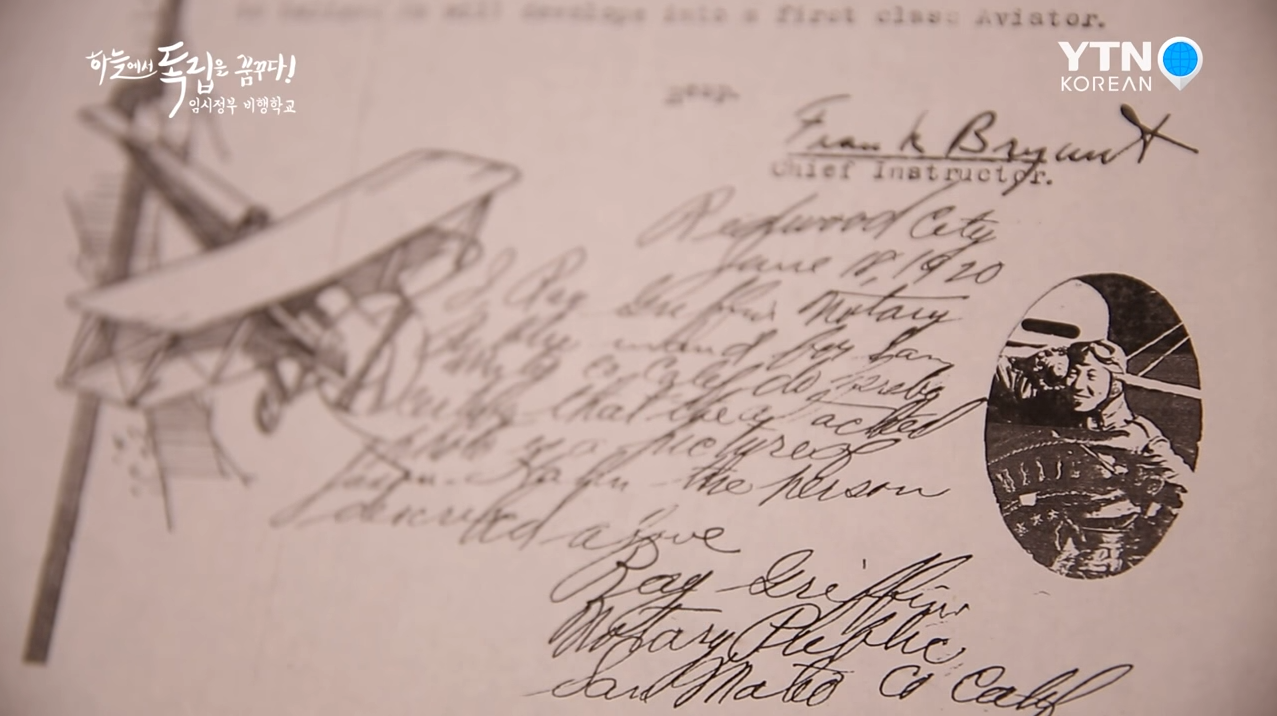 하늘에서 독립을 꿈꾸다!
임시정부 비행학교
YTN
KOREAN
develope into a first class Aviator.
Resp.
Frank Bryant
Chief Instructor.
Redwood City
June 18, 1920
I Ray Griffin Notary
Public in and for San
Mateo Co Calif do
that the attached
is a picture of
the person
described above
Ray Griffin
Notary Public
San Mateo Co Calif